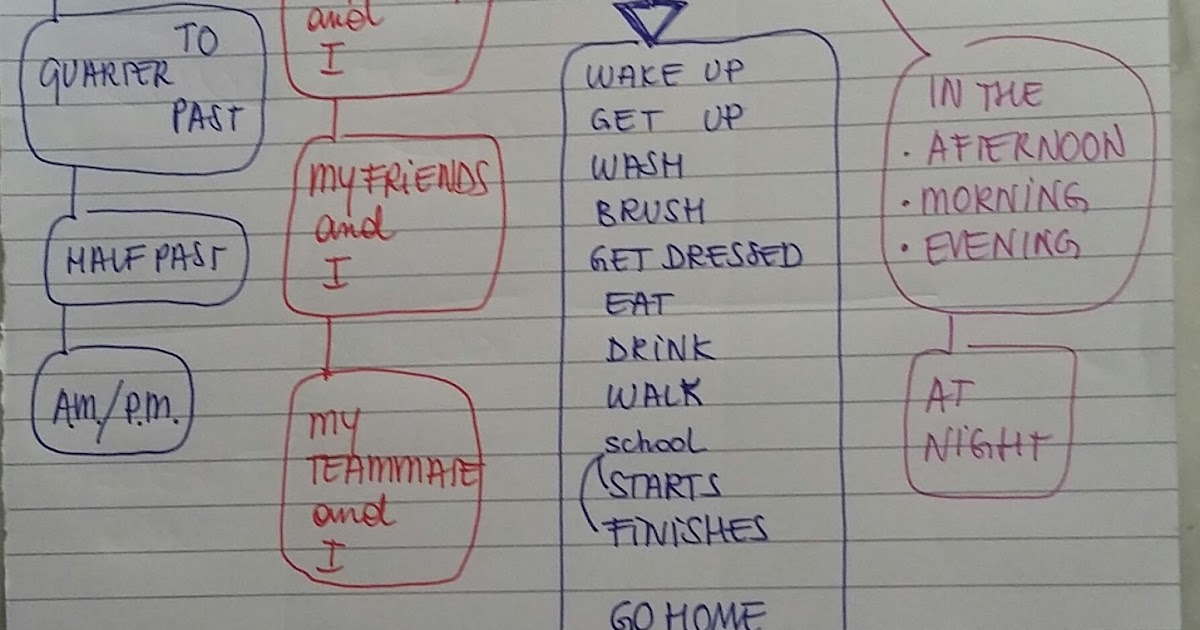 TO
QUARTER
PAST
HALF PAST
A.M./P.M.
and
I
MY FRiENDS
and
I
my
TEAMMATE
and
I
WAKE UP
GET UP
WASH
BRUSH
GET DRESSED
EAT
DRiNK
WALK
school
STARTS
FiNiSHES
GO HOME
IN THE
· AFTERNOON
· MORNiNG
· EVENiNG
AT
NiGHT